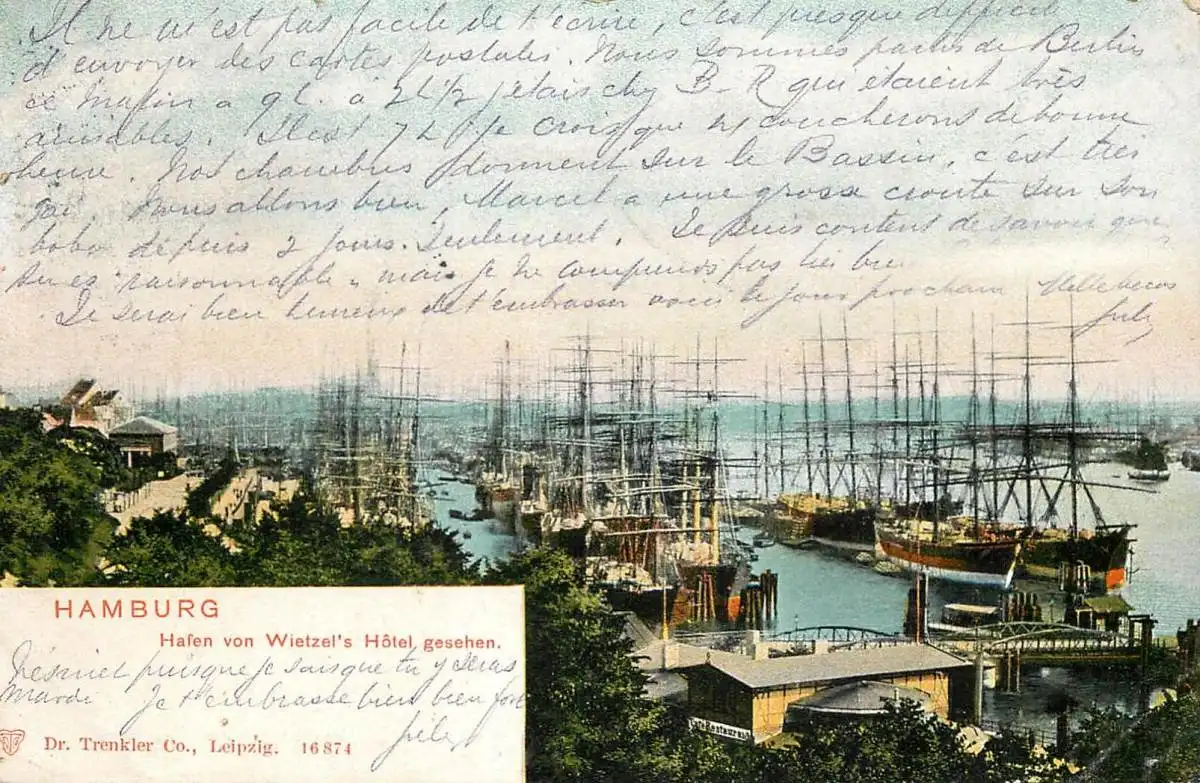 Il ne m'est pas facile de t'écrire, c'est presque difficile
d'envoyer des cartes postales. Nous sommes partis de Berlin
ce matin a 9h. a 2h1/2 j'etais chez B-R qui étaient très
aimables. Il est 7h je crois que ns coucherons de bonne
heure. Nos chambres donnent sur le Bassin, c'est très
gai. Nous allons bien, Marcel a une grosse croute sur son
bobo depuis 2 jours seulement. Je suis content de savoir que
tu es "raisonnable" mais je ne comprends pas très bien
Je serai bien heureux de t'embrasser jour prochain
HAMBURG
Hafen von Wietzel's Hôtel gesehen.
puisque je sais que tu y seras
Mardi Je t'embrasse bien bien fort
Dr. Trenkler Co., Leipzig. 16874
Restaurant